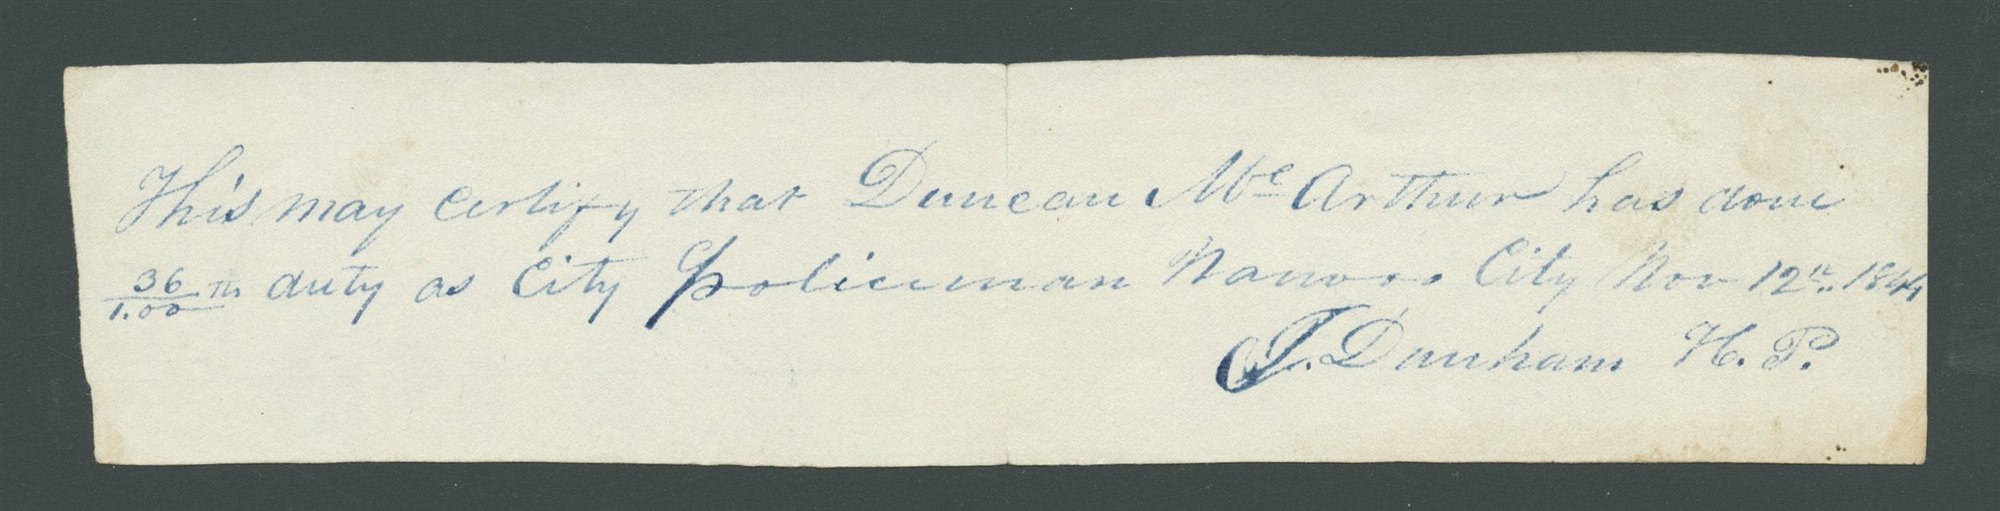 This may certify that Duncan Mc Arthur has done
36/1.00 ths duty as City policeman Nauvoo City Nov 12th. 1844
J. Dunham H. P.